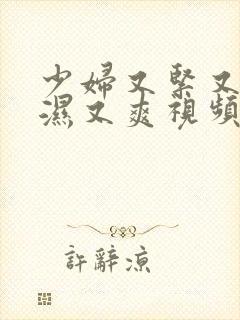 少婦又緊又
濕又爽視頻
許辭涼